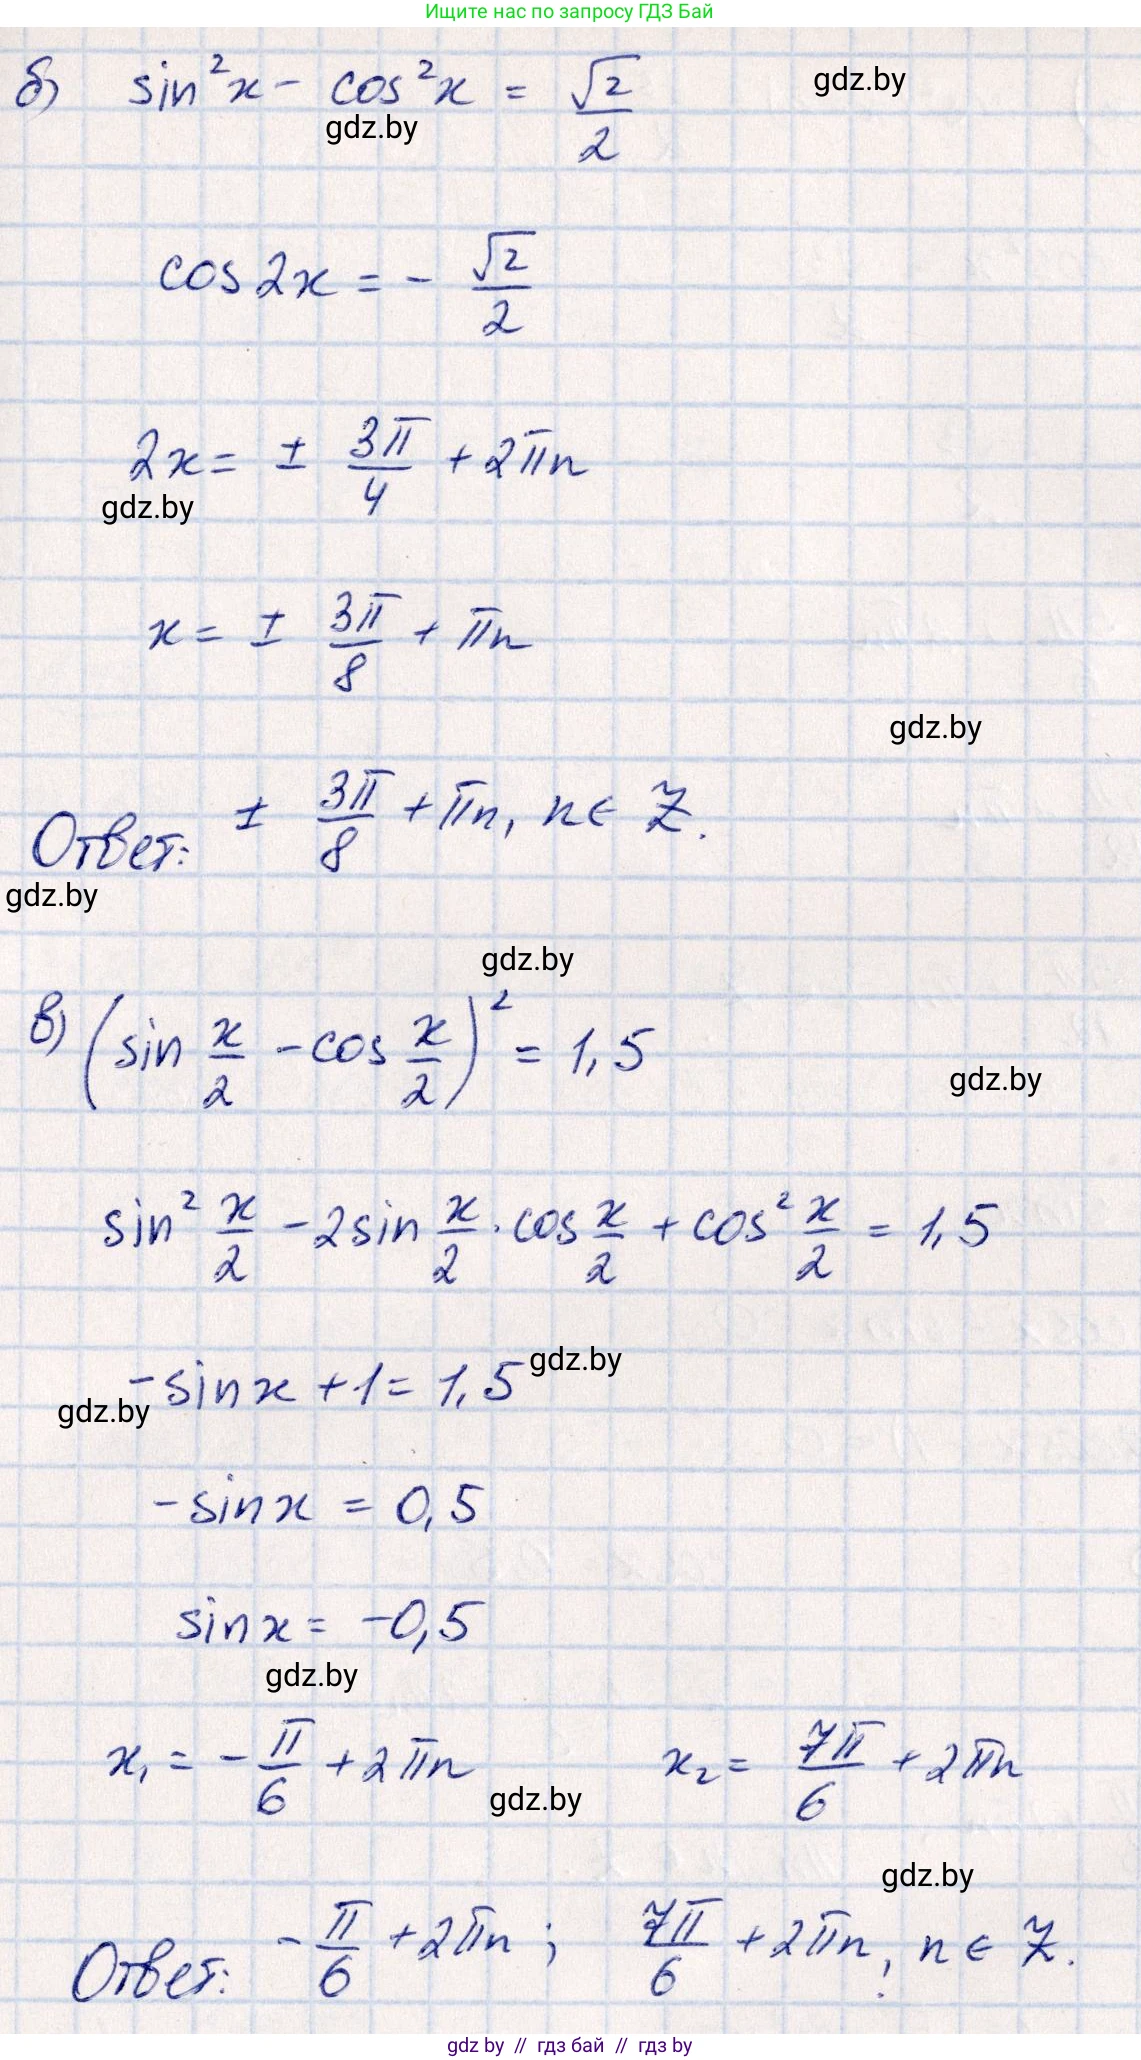 Ищите нас по запросу ГДЗ Бай
б) sin²x - cos²x = √2/2
gdz.by
gdz.by
cos2x = - √2/2
2x = ± 3π/4 + 2πn
gdz.by
x = ± 3π/8 + πn
gdz.by
Ответ: ± 3π/8 + πn, n ∈ Z.
gdz.by
gdz.by
в) (sin x/2 - cos x/2)² = 1,5
gdz.by
sin² x/2 - 2sin x/2 · cos x/2 + cos² x/2 = 1,5
gdz.by
-sinx + 1 = 1,5
gdz.by
-sinx = 0,5
sinx = -0,5
gdz.by
x₁ = - π/6 + 2πn x₂ = 7π/6 + 2πn
gdz.by
gdz.by
Ответ: - π/6 + 2πn ; 7π/6 + 2πn, n ∈ Z.
gdz by // гдз бай // гдз by